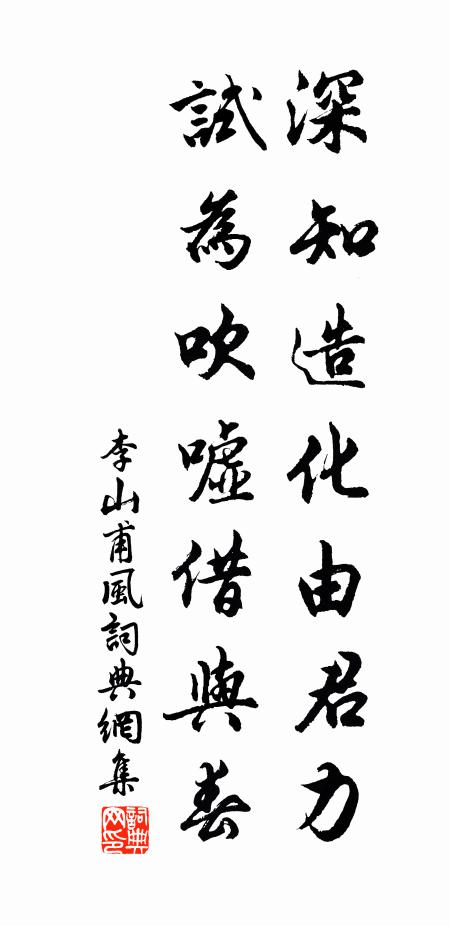 深知造化由君力
試為吹噓借與春
李山甫風詞典網集
詞典网印